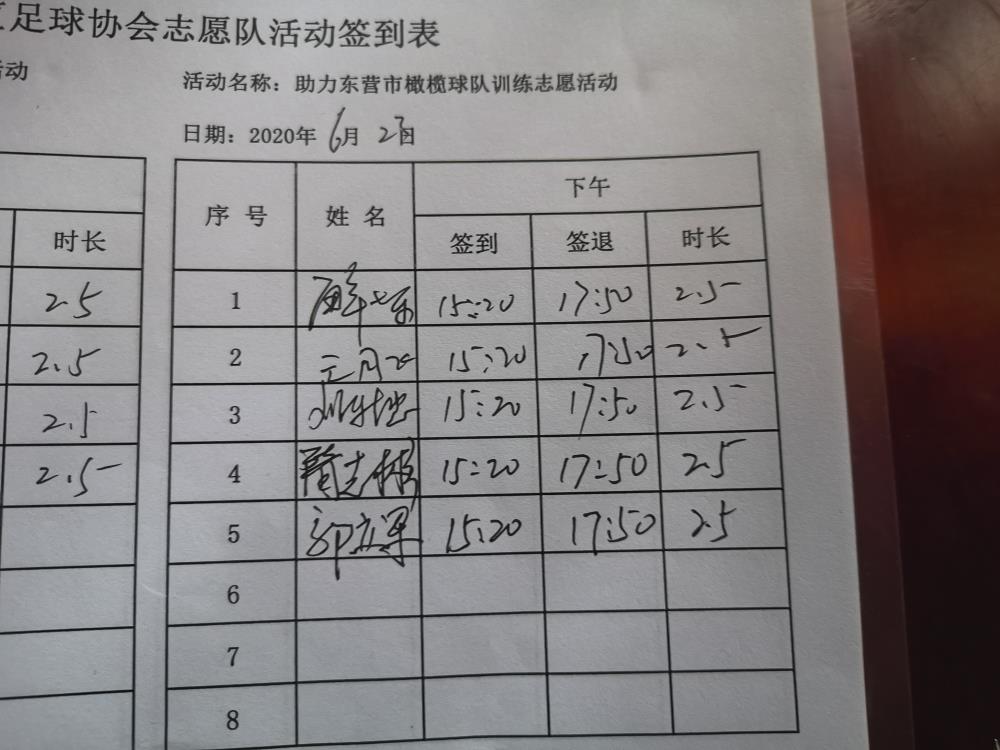 足球协会志愿队活动签到表
活动
活动名称：助力东营市橄榄球队训练志愿活动
日期：2020年 6月 23日
时长
2.5
2.5
2.5
2.5
序号 姓名 下午
签到 签退 时长
1 15:20 17:50 2.5
2 15:20 17:50 2.5
3 15:20 17:50 2.5
4 15:20 17:50 2.5
5 15:20 17:50 2.5
6
7
8